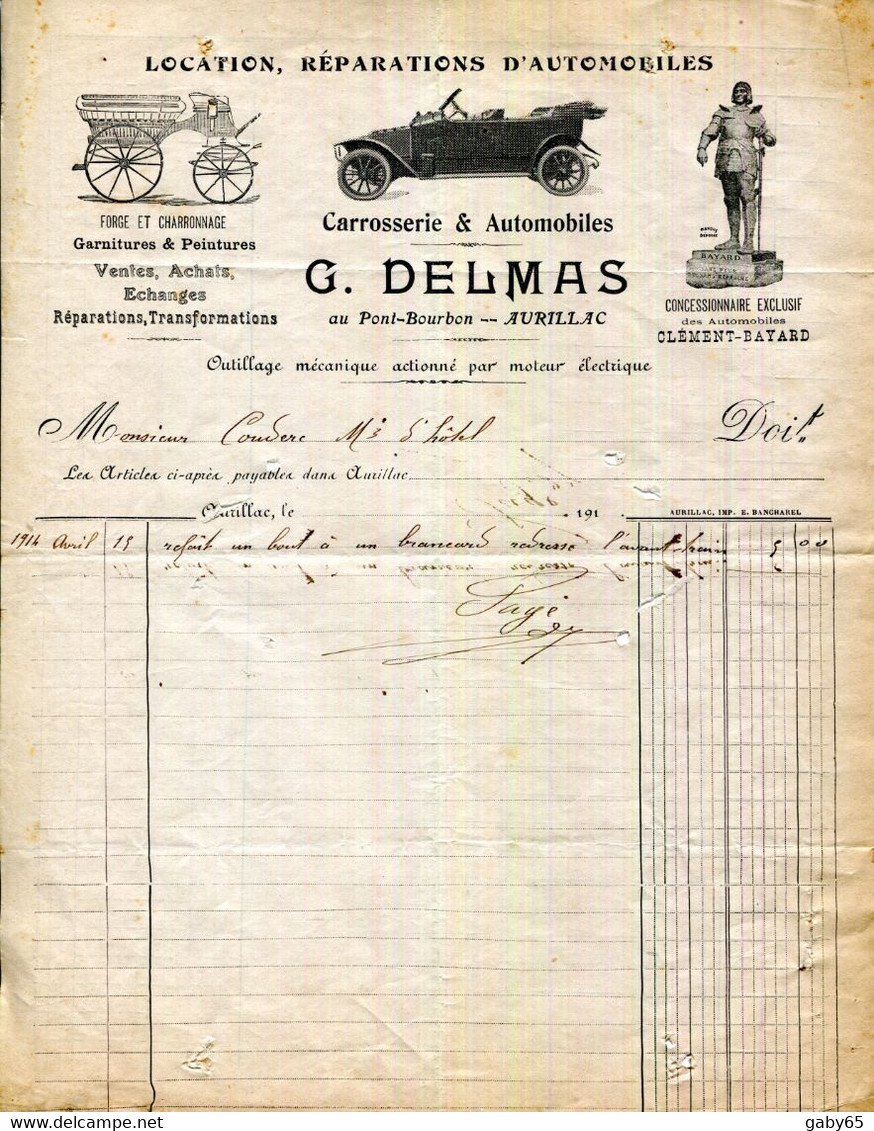 LOCATION, RÉPARATIONS D'AUTOMOBILES
FORGE ET CHARRONNAGE
Garnitures & Peintures
Ventes, Achats,
Echanges
Réparations, Transformations
Carrosserie & Automobiles
G. DELMAS
au Pont-Bourbon -- AURILLAC
BAYARD
CONCESSIONNAIRE EXCLUSIF
des Automobiles
CLÉMENT-BAYARD
Outillage mécanique actionné par moteur électrique
Monsieur Couderc Md d'hôtel Doit
Les Articles ci-après payables dans Aurillac
Aurillac, le 191
AURILLAC, IMP. E. BANCHAREL
1914 Avril 15 refait un bout à un brancard redressé l'avant train 5 00
Payé
gaby65